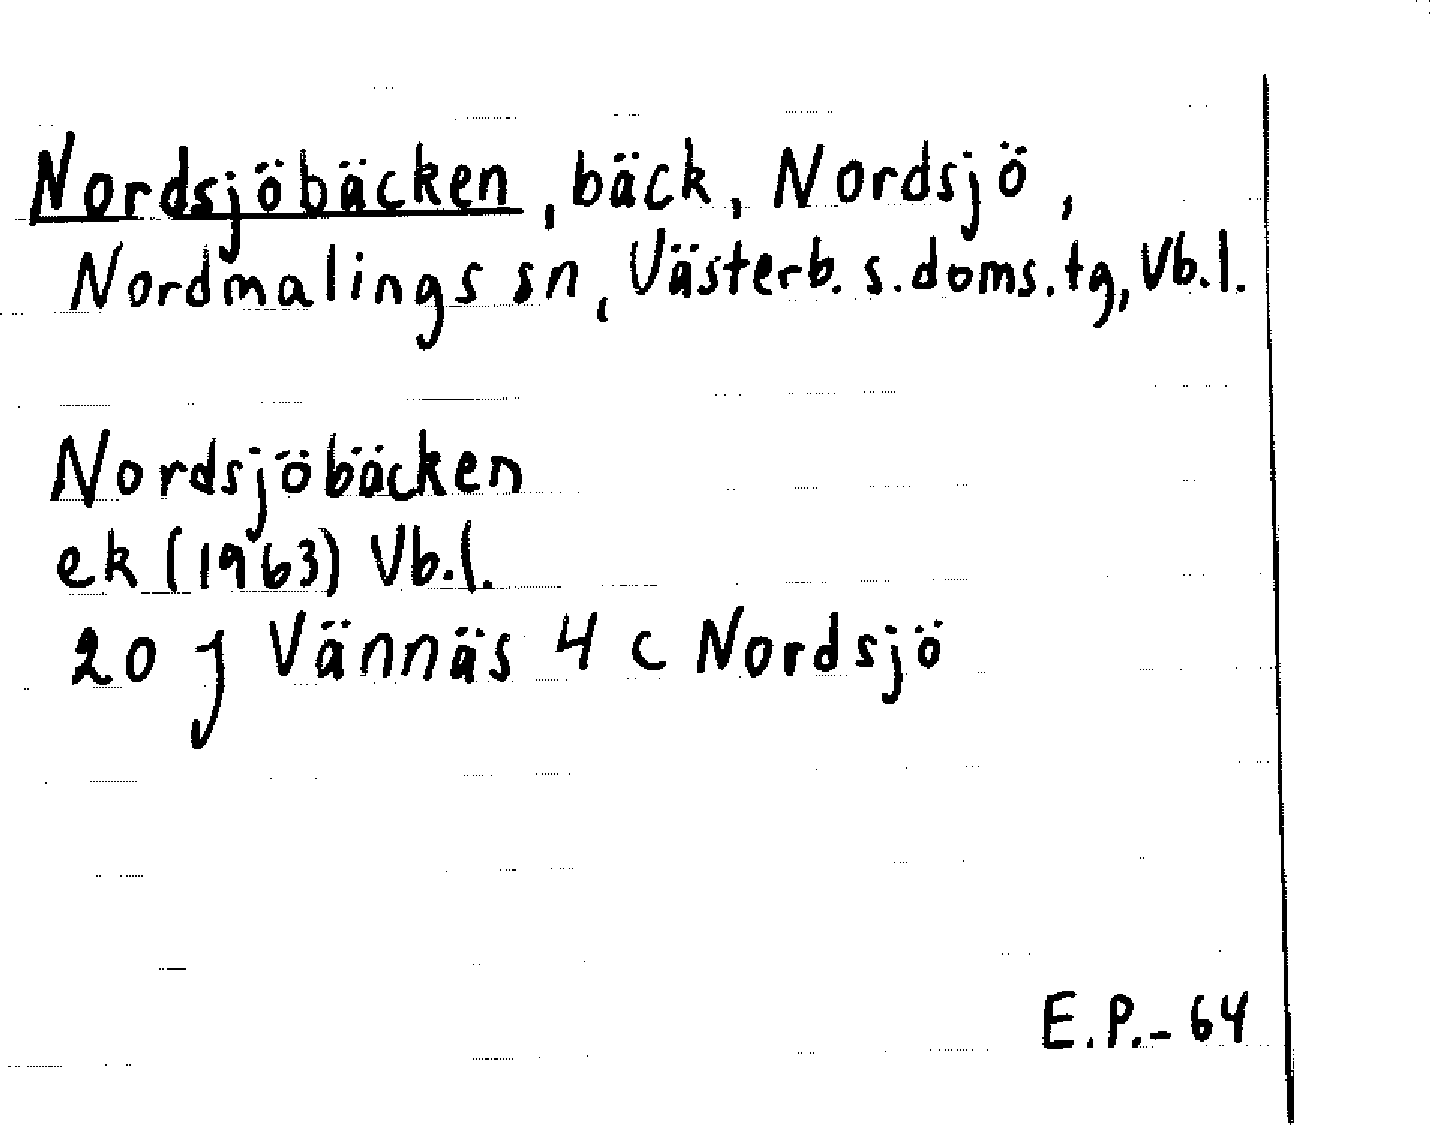 Nordsjöbäcken, bäck, Nordsjö,
Nordmalings sn, Västerb. s. doms. tg, Vb. l.
Nordsjöbäcken
ek (1963) Vb. l.
20 J Vännäs 4 c Nordsjö
E.P.- 64